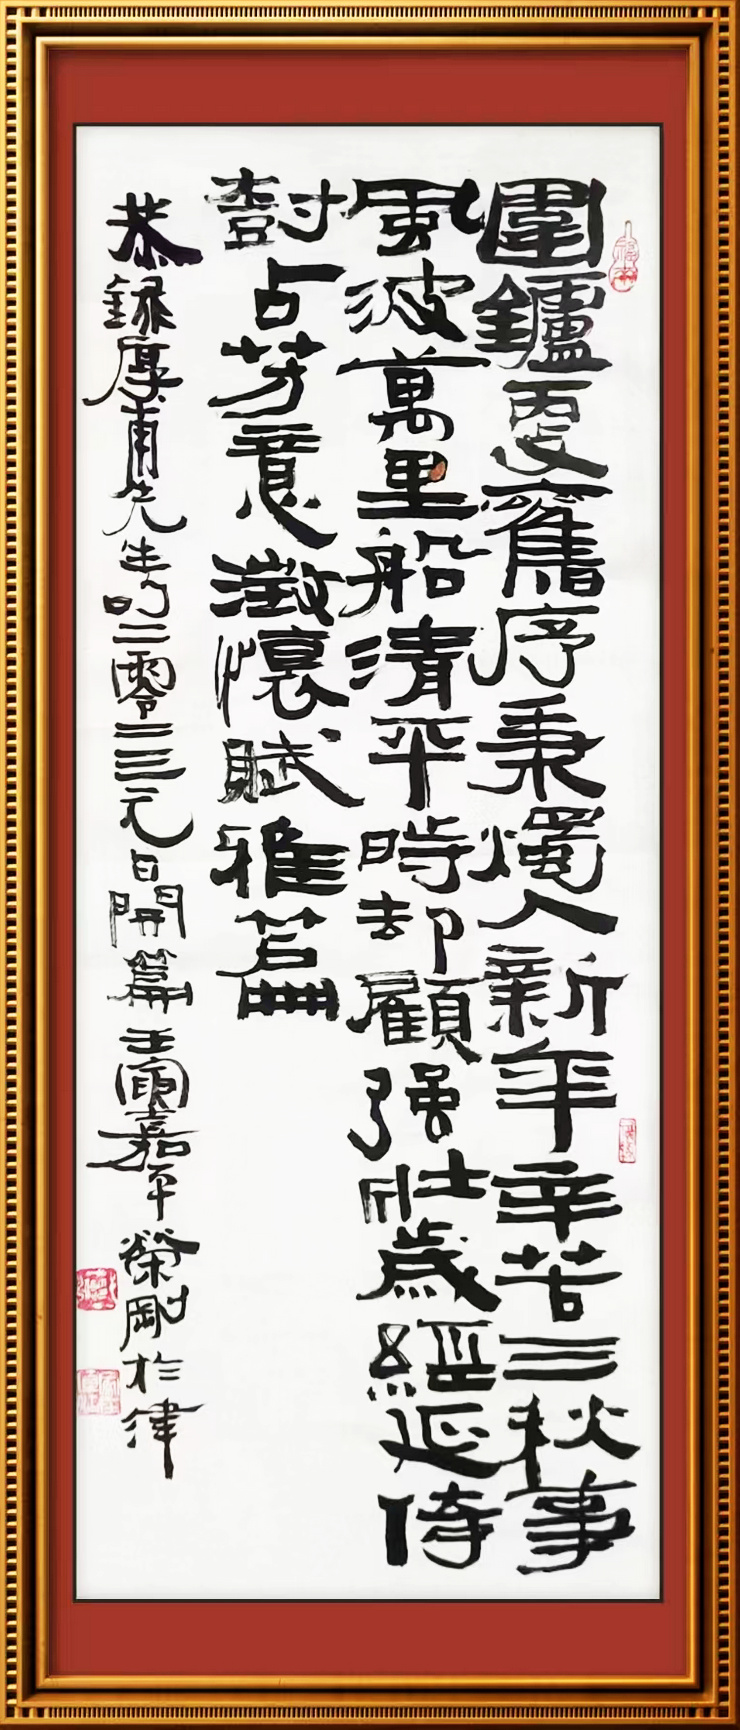 圍鑪舊序秉燭入新年辛苦三秋事
風波萬里船清平時却顧强壯歲經延倚
尌占芳意澂懷賦雅篇
恭録厚甫先生的二零二三元日開篇壬寅嘉平榮剛於津